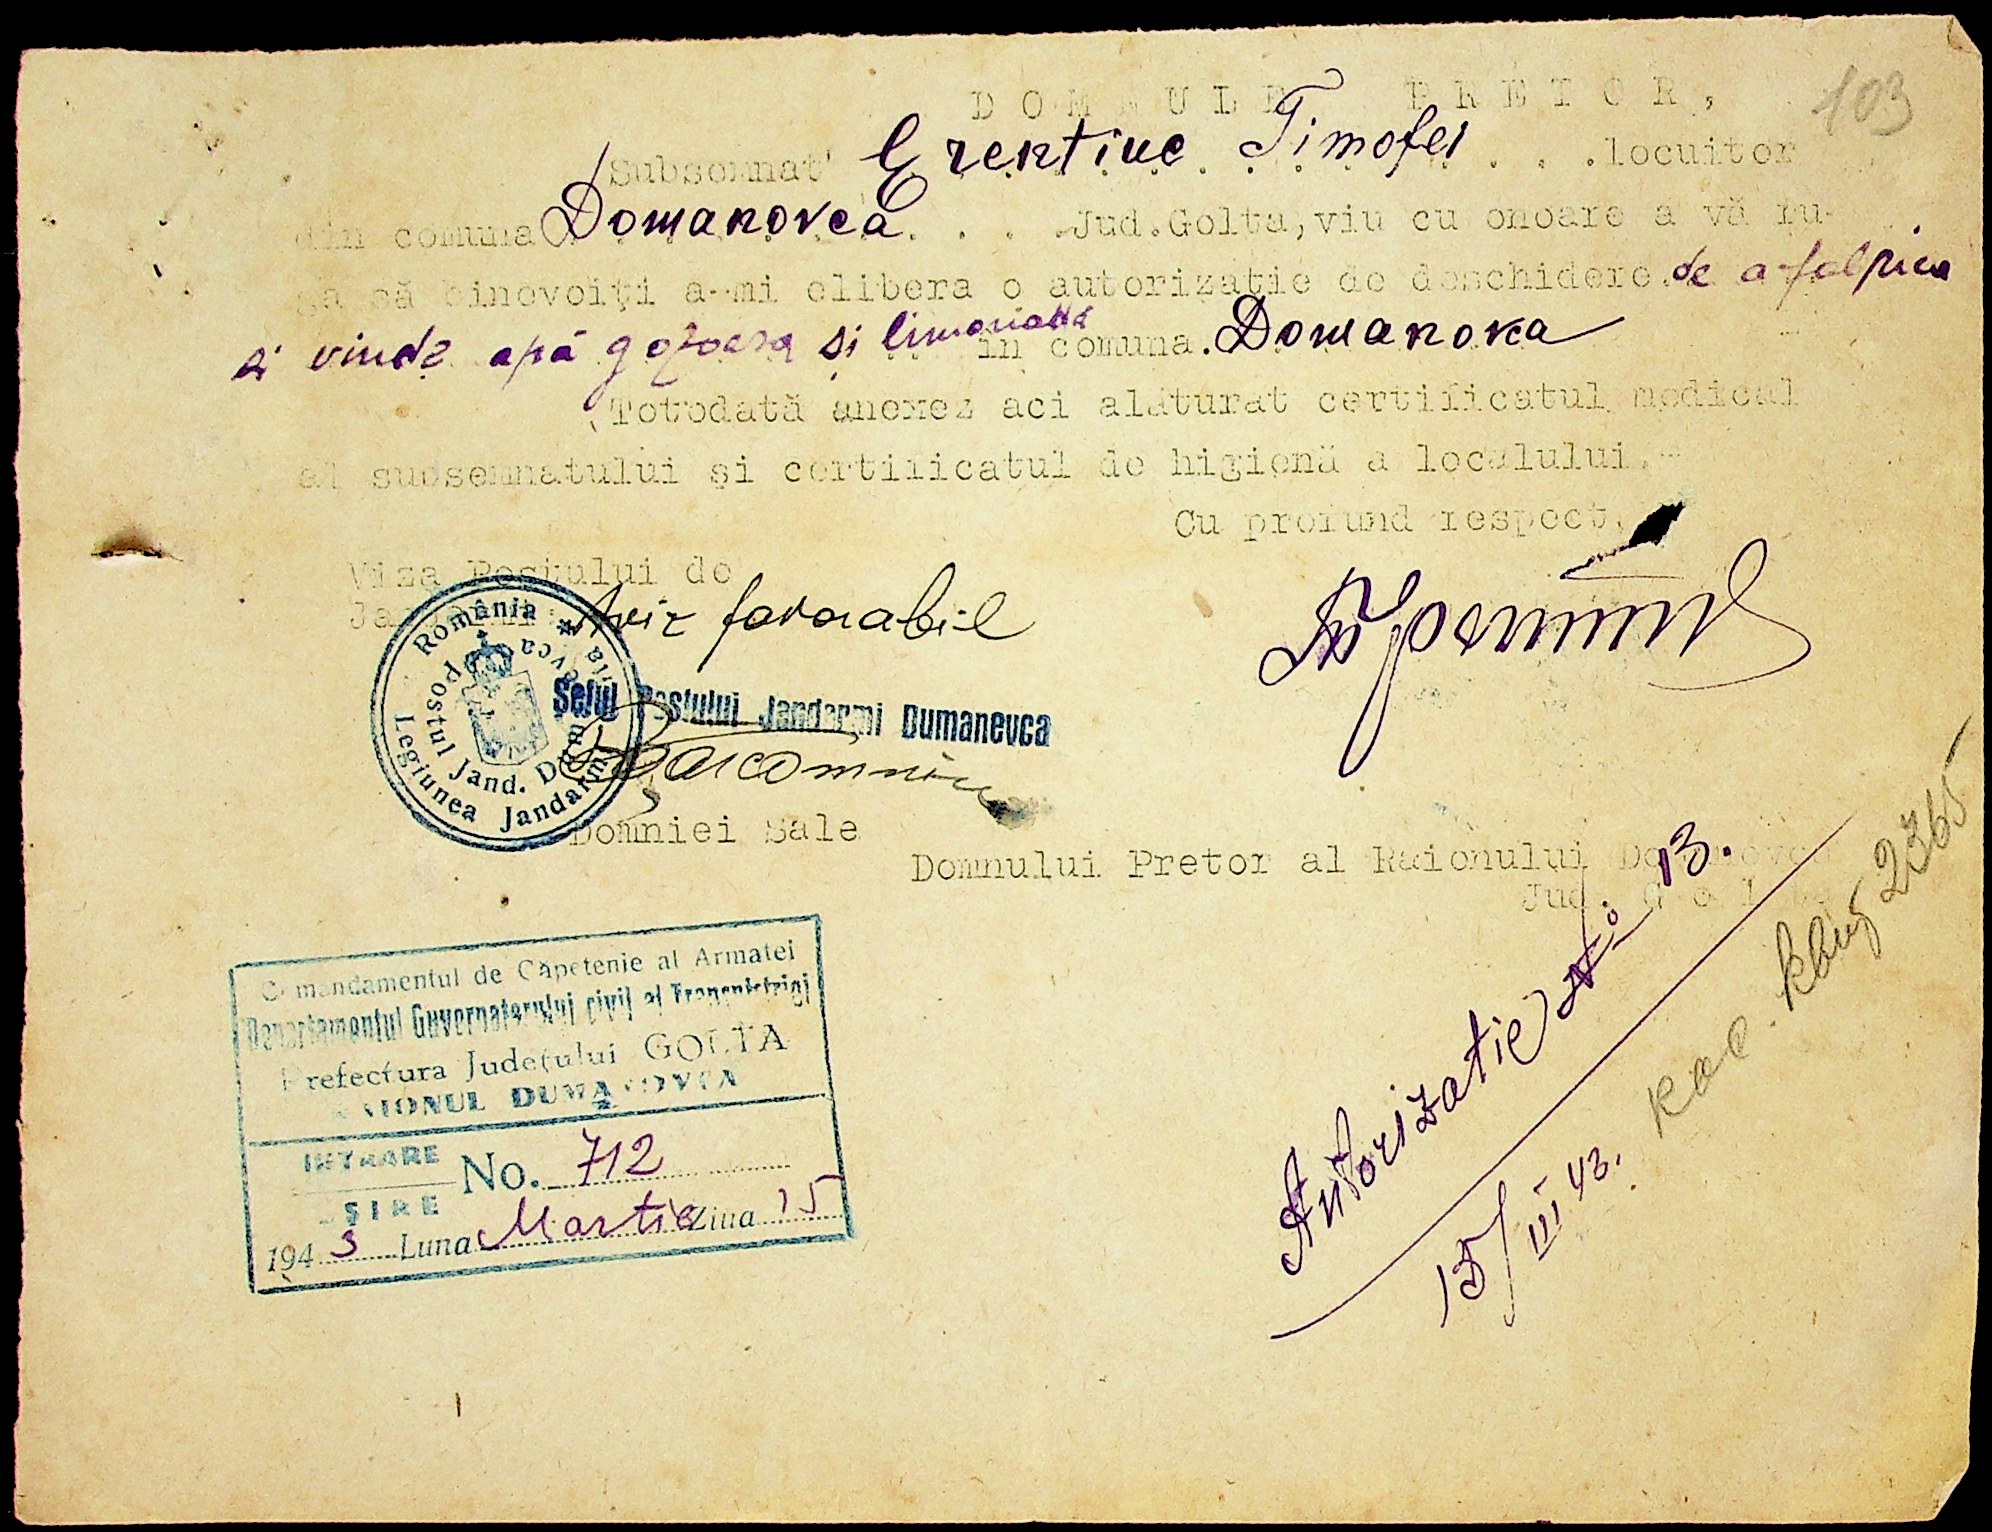 103
DOMNULE PRETOR,
Subsemnat Erentiuc Timofei . . . locuitor
din comuna Domanovca . . . Jud.Golta, viu cu onoare a vă ru-
ga să binevoiţi a-mi elibera o autorizaţie de deschidere de a falpica
si vinde apă gozoasa și limonată in comuna Domanovca
Totodată anexez aci alăturat certificatul medical
al subsemnatului și certificatul de higienă a localului.-
Cu profund respect,
Viza Postului de
Jandarmi Aviz favorabil
România
Legiunea Jandarmi
Postul Jand. Dumanevca
Șeful Postului Jandarmi Dumanevca
Domniei Sale
Domnului Pretor al Raionului Domanovca
Jud. Golta
Comandamentul de Căpetenie al Armatei
Departamentul Guvernatorului civil al Transnistriei
Prefectura Județului GOLTA
RAIONUL DUMANOVCA
INTRARE
EȘIRE
No. 712
1943 Luna Martie Ziua 15
Autorizatie No 13.
15/III 43.
2365